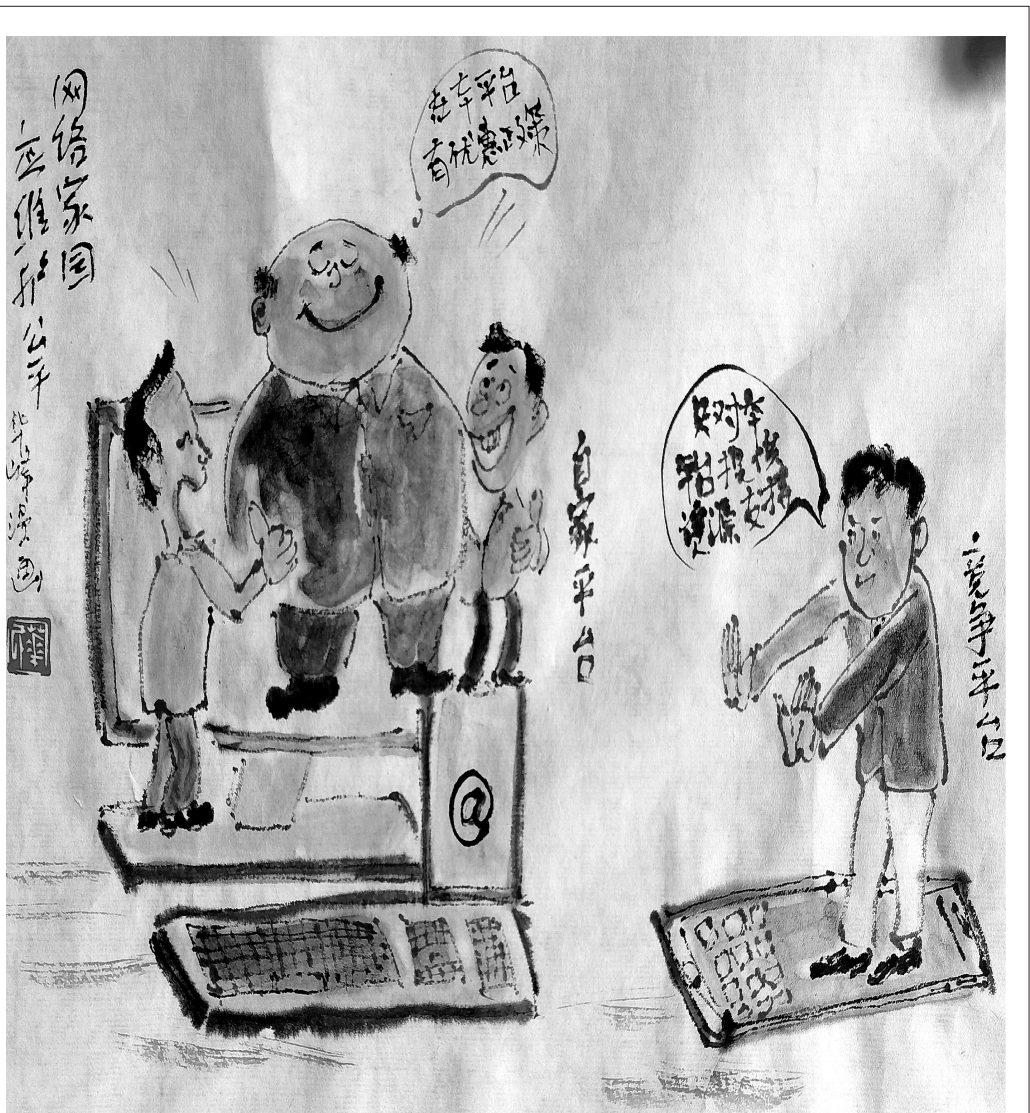 网络家园
应维护公平
漫画
在本平台
有优惠政策
自家平台
只对本
平台提供
资源支持
竞争平台